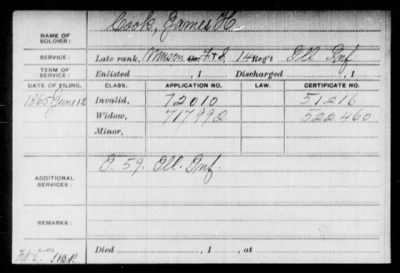 NAME OF SOLDIER: Cook, James H
SERVICE: Late rank, F & S, 14 Reg't Ill Inf
TERM OF SERVICE: Enlisted , 1 Discharged , 1
DATE OF FILING. CLASS. APPLICATION NO. LAW. CERTIFICATE NO.
1865 June 12 Invalid, 72010 51216
Widow, 717992 522460
Minor,
ADDITIONAL SERVICES: D. 59. Ill. Inf.
REMARKS:
Died , 1 , at